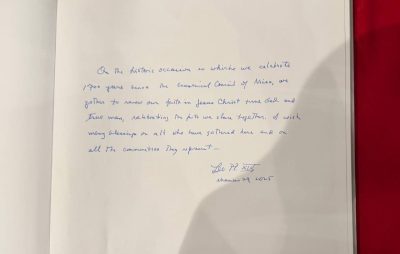 On the historic occasion in which we celebrate
1700 years since the Ecumenical Council of Nicea, we
gather to renew our faith in Jesus Christ true God and
true man, celebrating the faith we share together. I wish
many blessings on all who have gathered here and on
all the communities they represent —
Leo PP XIV
29 2025